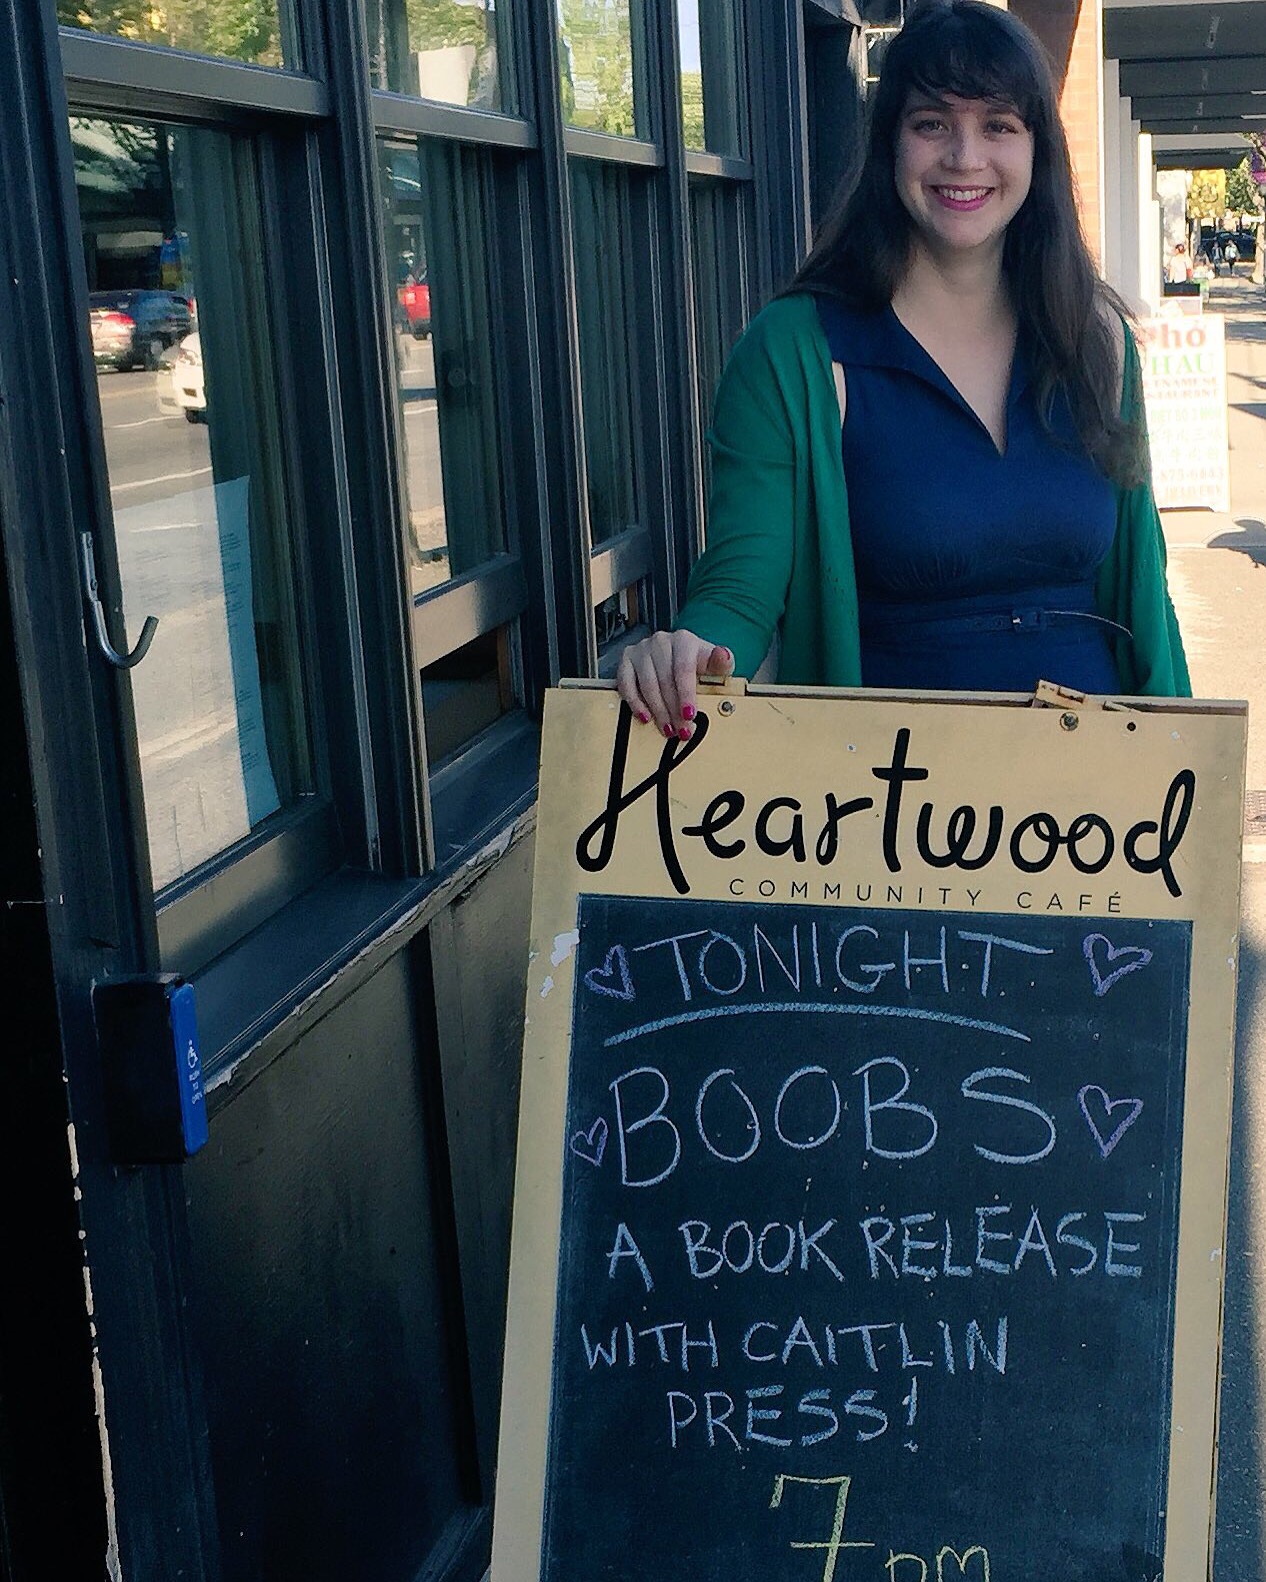 Heartwood
COMMUNITY CAFÉ
TONIGHT
BOOBS
A BOOK RELEASE
WITH CAITLIN
PRESS!
7pm
HAU